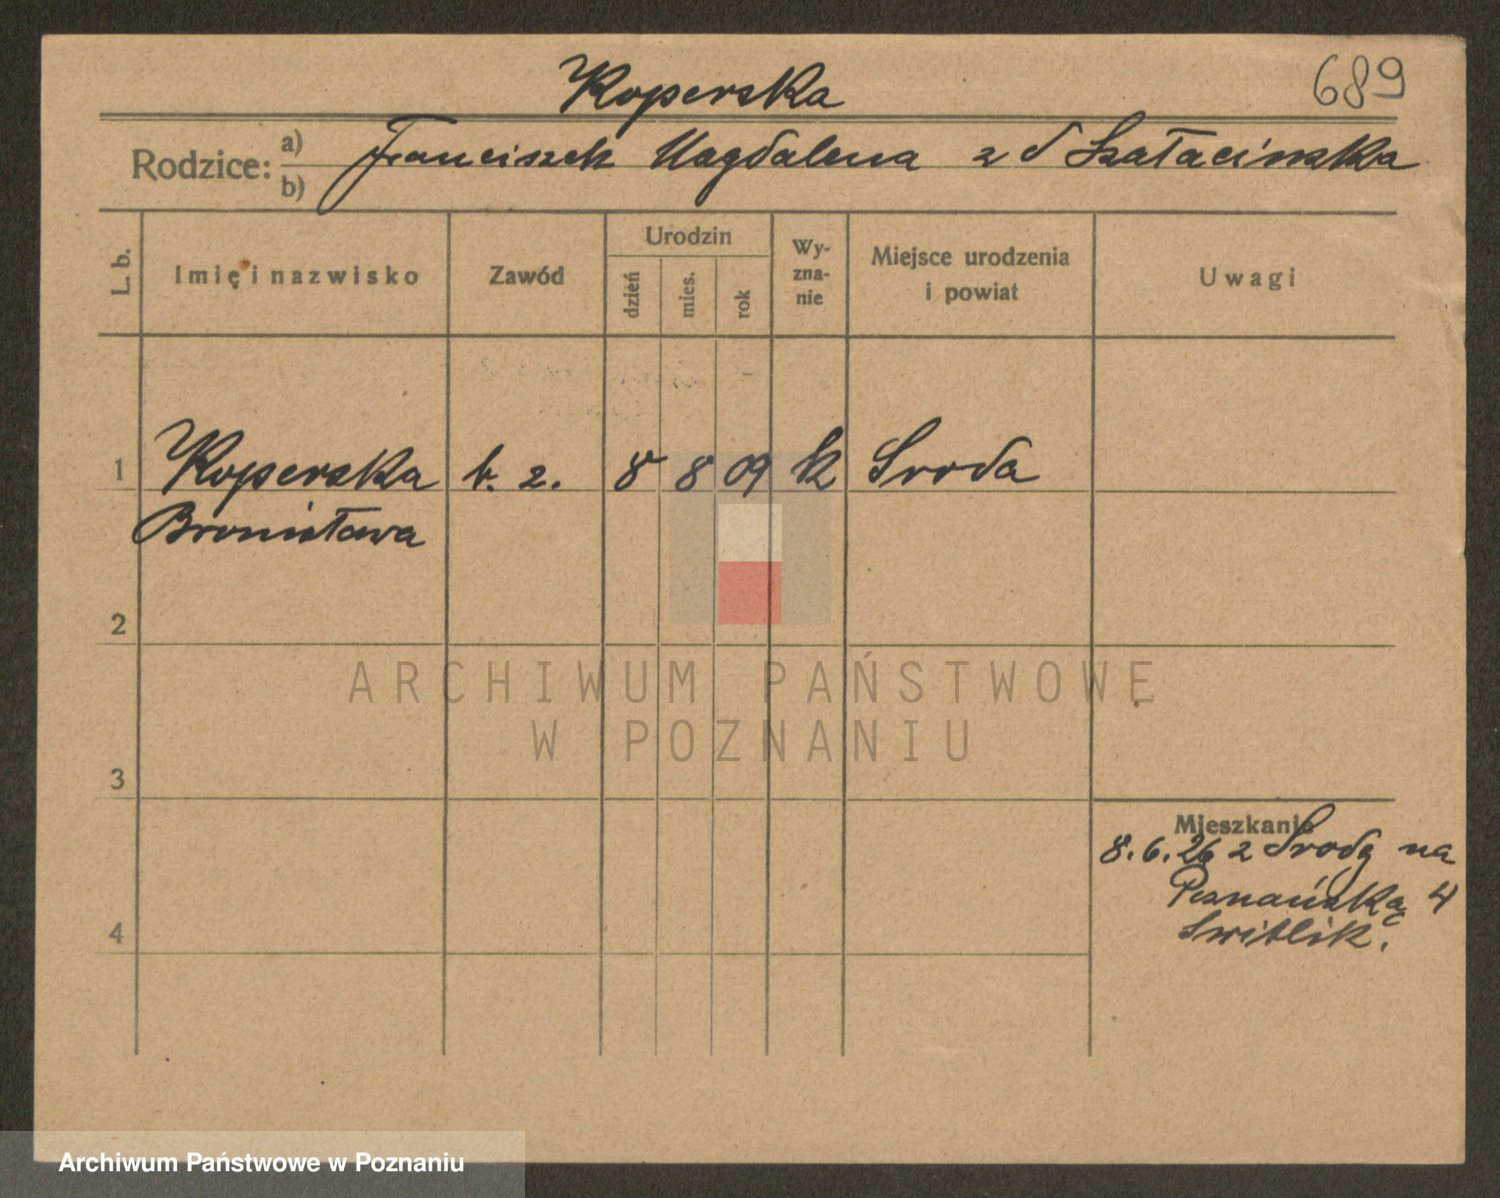 Koperska 689
Rodzice: a) Franciszek Magdalena z d Szałacinska
b)
L. b. Imię i nazwisko Zawód Urodzin dzień mies. rok Wyznanie Miejsce urodzenia i powiat Uwagi
1 Koperska b. z. 8 8 09 k Sroda
Bronisława
2
3
4
Mieszkanie
8. 6. 26 z Srody na
Poznańską 4
Switlik.
ARCHIWUM PAŃSTWOWE
W POZNANIU
Archiwum Państwowe w Poznaniu